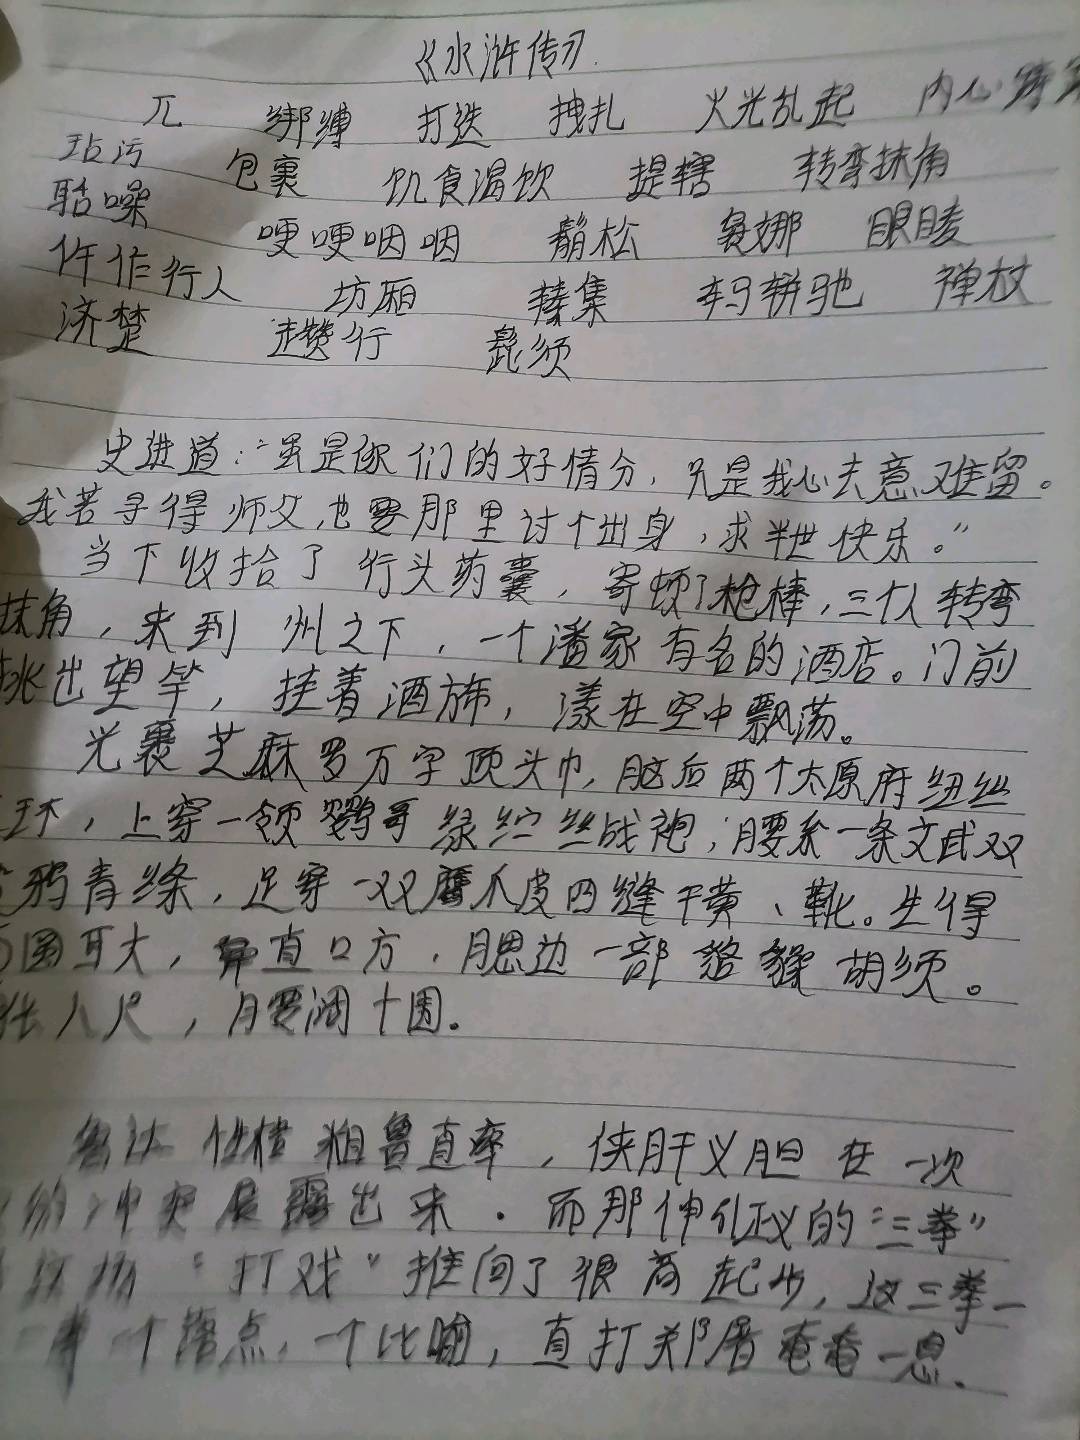 《水浒传》
兀 绑缚 打迭 拽扎 火光乱起 内心
玷污 包裹 饥食渴饮 提辖 转弯抹角
聒噪 哽哽咽咽 鬅松 袅娜 眼睖
仵作行人 坊厢 辏集 车马軿驰 禅杖
济楚 趱行 髭须
史进道:“虽是你们的好情分,只是我心去意难留。
我若寻得师父,也要那里讨个出身,求半世快乐。”
当下收拾了行头药囊,寄顿了枪棒,三个人转弯
抹角,来到州之下,一个潘家有名的酒店。门前
挑出望竿,挂着酒旆,漾在空中飘荡。
头裹芝麻罗万字顶头巾,脑后两个太原府纽丝
环,上穿一领鹦哥绿纻丝战袍,腰系一条文武双
鸦青绦,足穿一双鹰爪皮四缝干黄、靴。生得
圆耳大,鼻直口方,腮边一部貉𧳅胡须。
长八尺,腰阔十围。
鲁达性格粗鲁直率,侠肝义胆在一次
的冲突展露出来.而那伸张正义的“三拳”
“打戏”推向了很高起步,这三拳一
拳一个落点,一个比喻,直打郑屠奄奄一息.